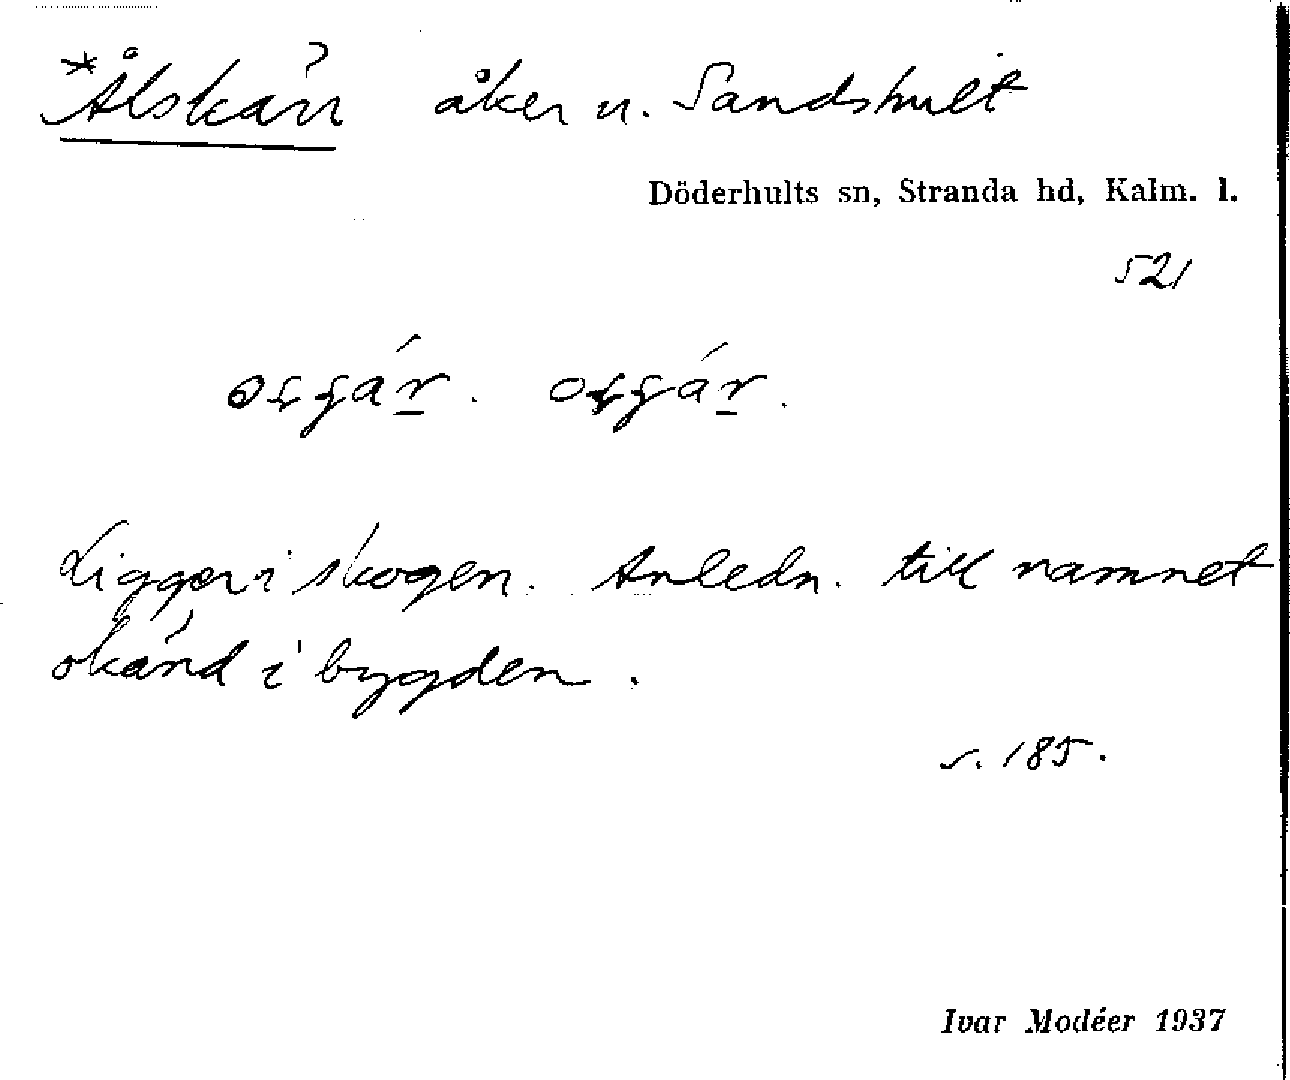 *Ålskärr åker u. Sandshult
Döderhults sn, Stranda hd, Kalm. l.
521
Ligger i skogen. Anledn. till namnet
okänd i bygden.
s. 185.
Ivar Modéer 1937